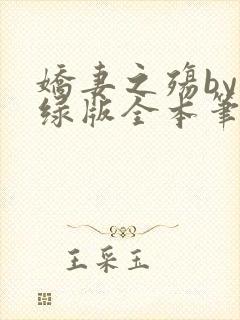 娇妻之殇by
绿版全本笔
王采玉